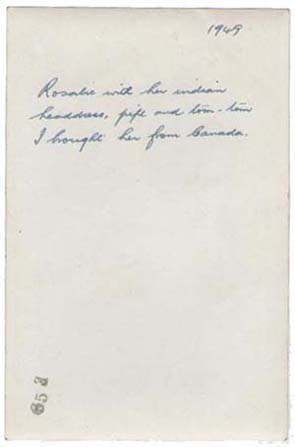 1949
Rosalie with her indian
headdress, pipe and tom-tom
I brought her from Canada.